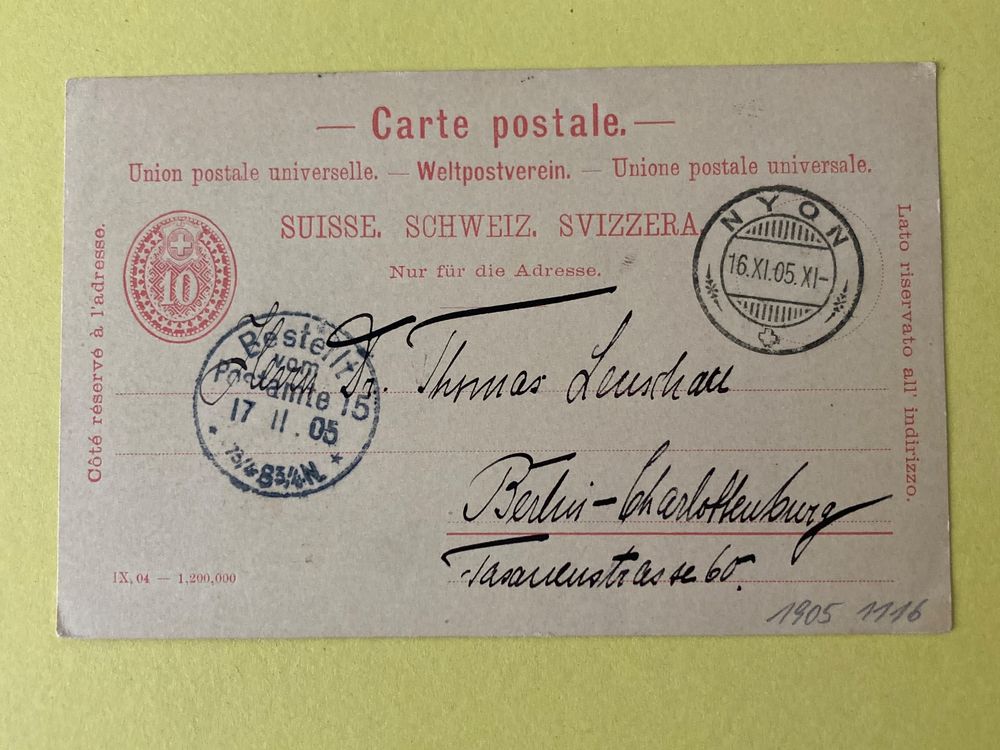 — Carte postale. —
Union postale universelle. — Weltpostverein. — Unione postale universale.
SUISSE. SCHWEIZ. SVIZZERA.
Nur für die Adresse.
Côté réservé à l'adresse.
Lato riservato all' indirizzo.
10
NYON
16.XI.05.XI-
Bestellt
vom
Postamte 15
17 11.05
7 3/4-8 3/4 N.
Herrn Dr. Thomas Lenschau
Berlin-Charlottenburg
Fasanenstrasse 60.
IX, 04 — 1,200,000
1905 1116